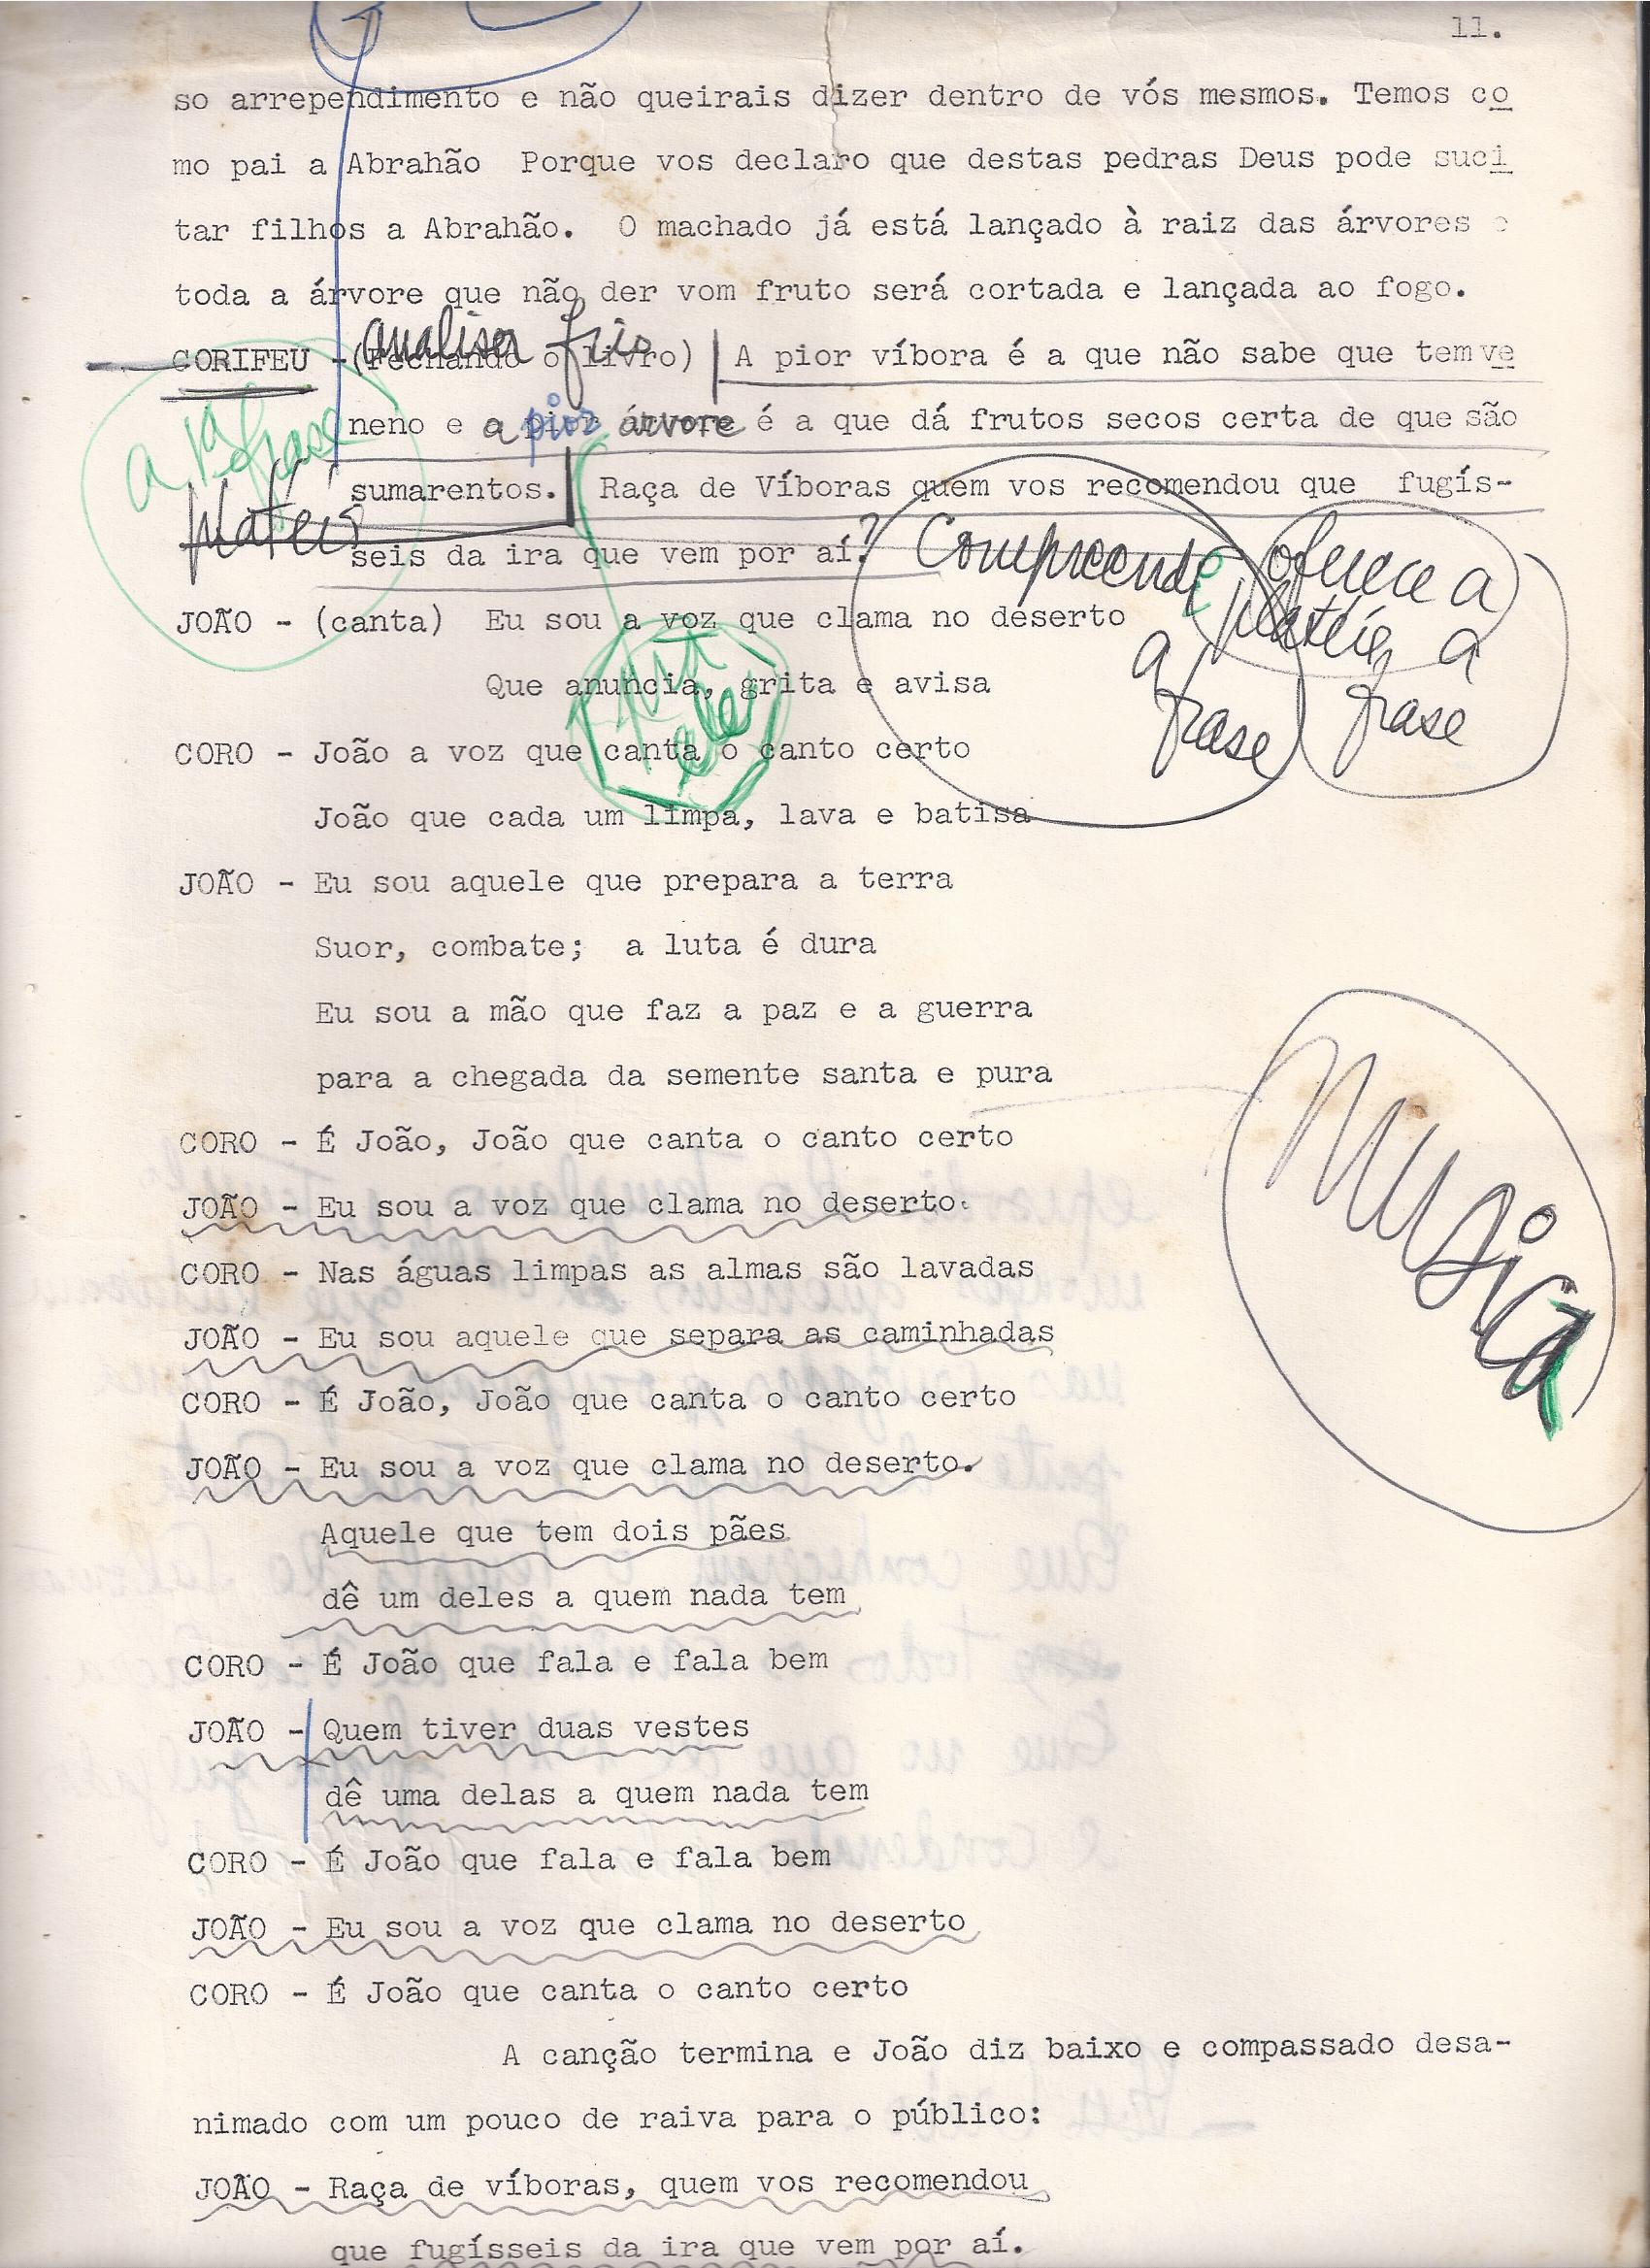 11.
so arrependimento e não queirais dizer dentro de vós mesmos. Temos co
mo pai a Abrahão Porque vos declaro que destas pedras Deus pode suci
tar filhos a Abrahão. O machado já está lançado à raiz das árvores e
toda a árvore que não der vom fruto será cortada e lançada ao fogo.
analisa frio
CORIFEU -(Fechando o livro) A pior víbora é a que não sabe que tem ve
a 1ª frase
neno e a pior árvore é a que dá frutos secos certa de que são
sumarentos. Raça de Víboras quem vos recomendou que fugís-
Platéia
seis da ira que vem por aí?
Compreende a frase
oferece a Platéia a frase
JOÃO - (canta) Eu sou a voz que clama no deserto
Que anuncia, grita e avisa
CORO - João a voz que canta o canto certo
João que cada um limpa, lava e batisa
JOÃO - Eu sou aquele que prepara a terra
Suor, combate; a luta é dura
Eu sou a mão que faz a paz e a guerra
para a chegada da semente santa e pura
Musica
CORO - É João, João que canta o canto certo
JOÃO - Eu sou a voz que clama no deserto.
CORO - Nas águas limpas as almas são lavadas
JOÃO - Eu sou aquele que separa as caminhadas
CORO - É João, João que canta o canto certo
JOÃO - Eu sou a voz que clama no deserto.
Aquele que tem dois pães
dê um deles a quem nada tem
CORO - É João que fala e fala bem
JOÃO - Quem tiver duas vestes
dê uma delas a quem nada tem
CORO - É João que fala e fala bem
JOÃO - Eu sou a voz que clama no deserto
CORO - É João que canta o canto certo
A canção termina e João diz baixo e compassado desa-
nimado com um pouco de raiva para o público:
JOÃO - Raça de víboras, quem vos recomendou
que fugísseis da ira que vem por aí.